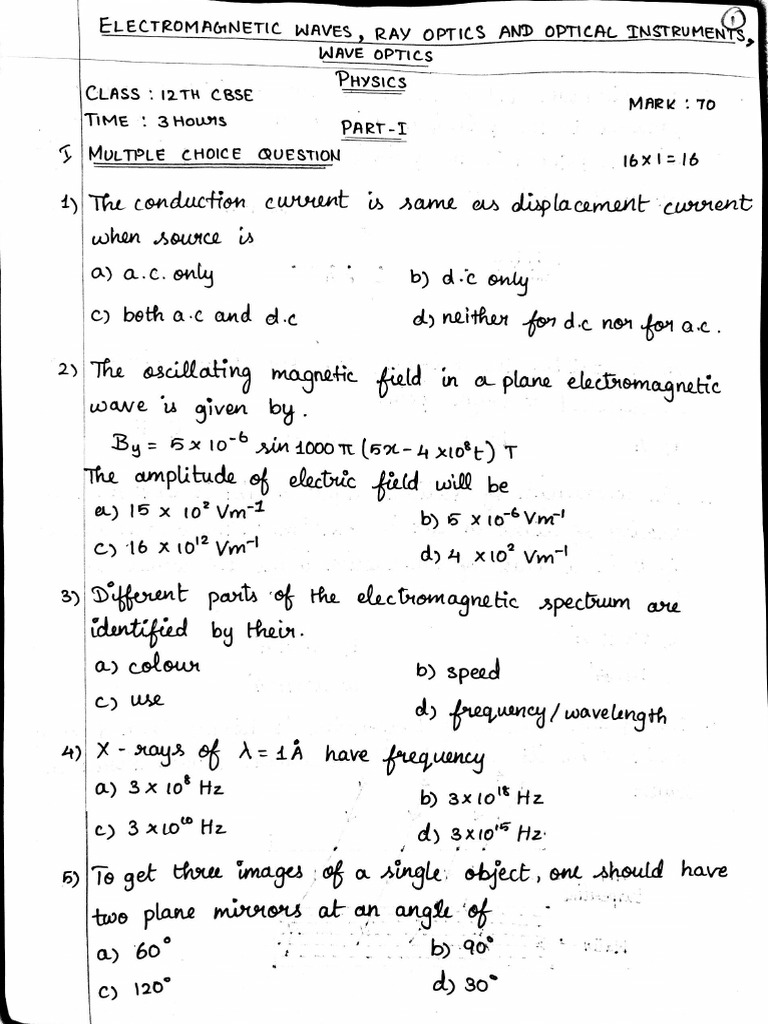 1
ELECTROMAGNETIC WAVES, RAY OPTICS AND OPTICAL INSTRUMENTS,
WAVE OPTICS
PHYSICS
CLASS : 12TH CBSE
MARK : 70
TIME : 3 HOURS
PART-I
I MULTPLE CHOICE QUESTION
16 x 1 = 16
1) The conduction current is same as displacement current
when source is
a) a.c. only b) d.c only
c) both a.c and d.c d) neither for d.c nor for a.c.
2) The oscillating magnetic field in a plane electromagnetic
wave is given by.
By = 5 x 10⁻⁶ sin 1000 π (5x - 4 x10⁸t) T
The amplitude of electric field will be
a) 15 x 10² Vm⁻¹ b) 5 x 10⁻⁶ Vm⁻¹
c) 16 x 10¹² Vm⁻¹ d) 4 x10² Vm⁻¹
3) Different parts of the electromagnetic spectrum are
identified by their.
a) colour b) speed
c) use d) frequency/wavelength
4) X - rays of λ = 1Å have frequency
a) 3 x 10⁸ Hz b) 3 x 10¹⁸ Hz
c) 3 x 10¹⁰ Hz d) 3x10¹⁵ Hz
5) To get three images of a single object, one should have
two plane mirrors at an angle of
a) 60° b) 90°
c) 120° d) 30°